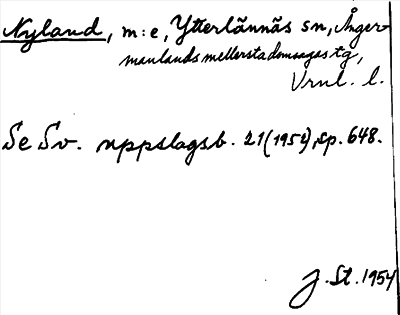 Nyland, m:e, Ytterlännäs sn, Ånger-
manlands mellersta domsagas tg,
Vrnl. l.
Se Sv. uppslagsb. 21 (1952), sp. 648.
J. St. 1954